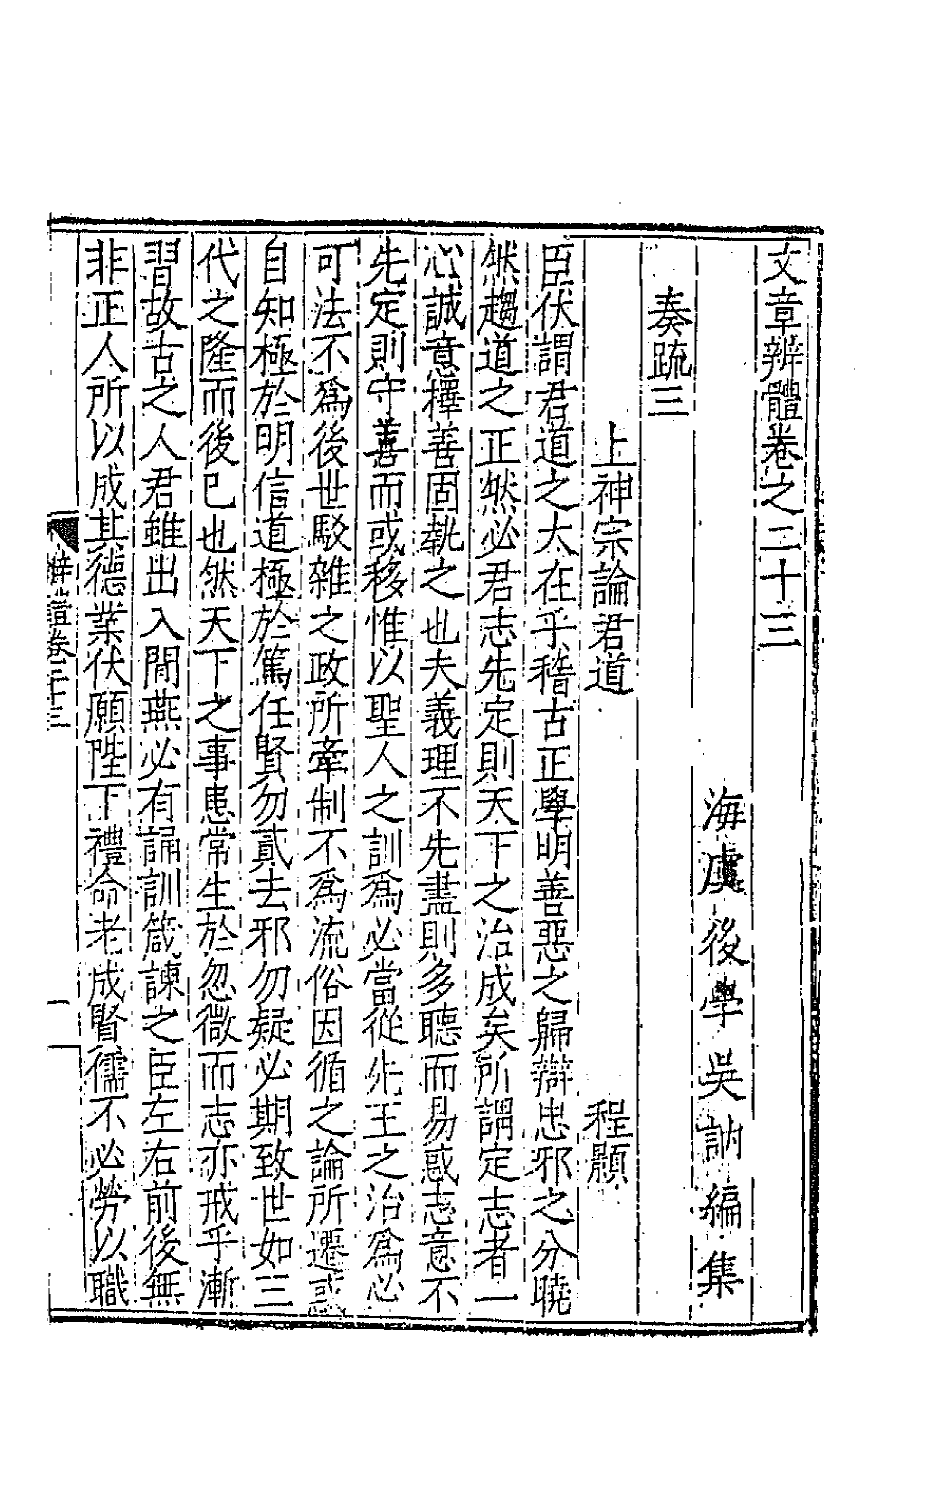 文章辨體卷之二十三
海虞後學吳訥編集
奏疏三
上神宗論君道 程顥
臣伏謂君道之大在乎稽古正學明善惡之歸辯忠邪之分曉
然趨道之正然必君志先定則天下之治成矣所謂定志者一
心誠意擇善固執之也夫義理不先盡則多聽而易惑志意不
先定則守善而或移惟以聖人之訓為必當從先王之治為必
可法不為後世駁雜之政所牽制不為流俗因循之論所遷惑
自知極於明信道極於篤任賢勿貳去邪勿疑必期致世如三
代之隆而後已也然天下之事患常生於忽微而志亦戒乎漸
習故古之人君雖出入閒燕必有誦訓箴諫之臣左右前後無
非正人所以成其德業伏願陛下禮命老成賢儒不必勞以職
辨體卷二十三
一